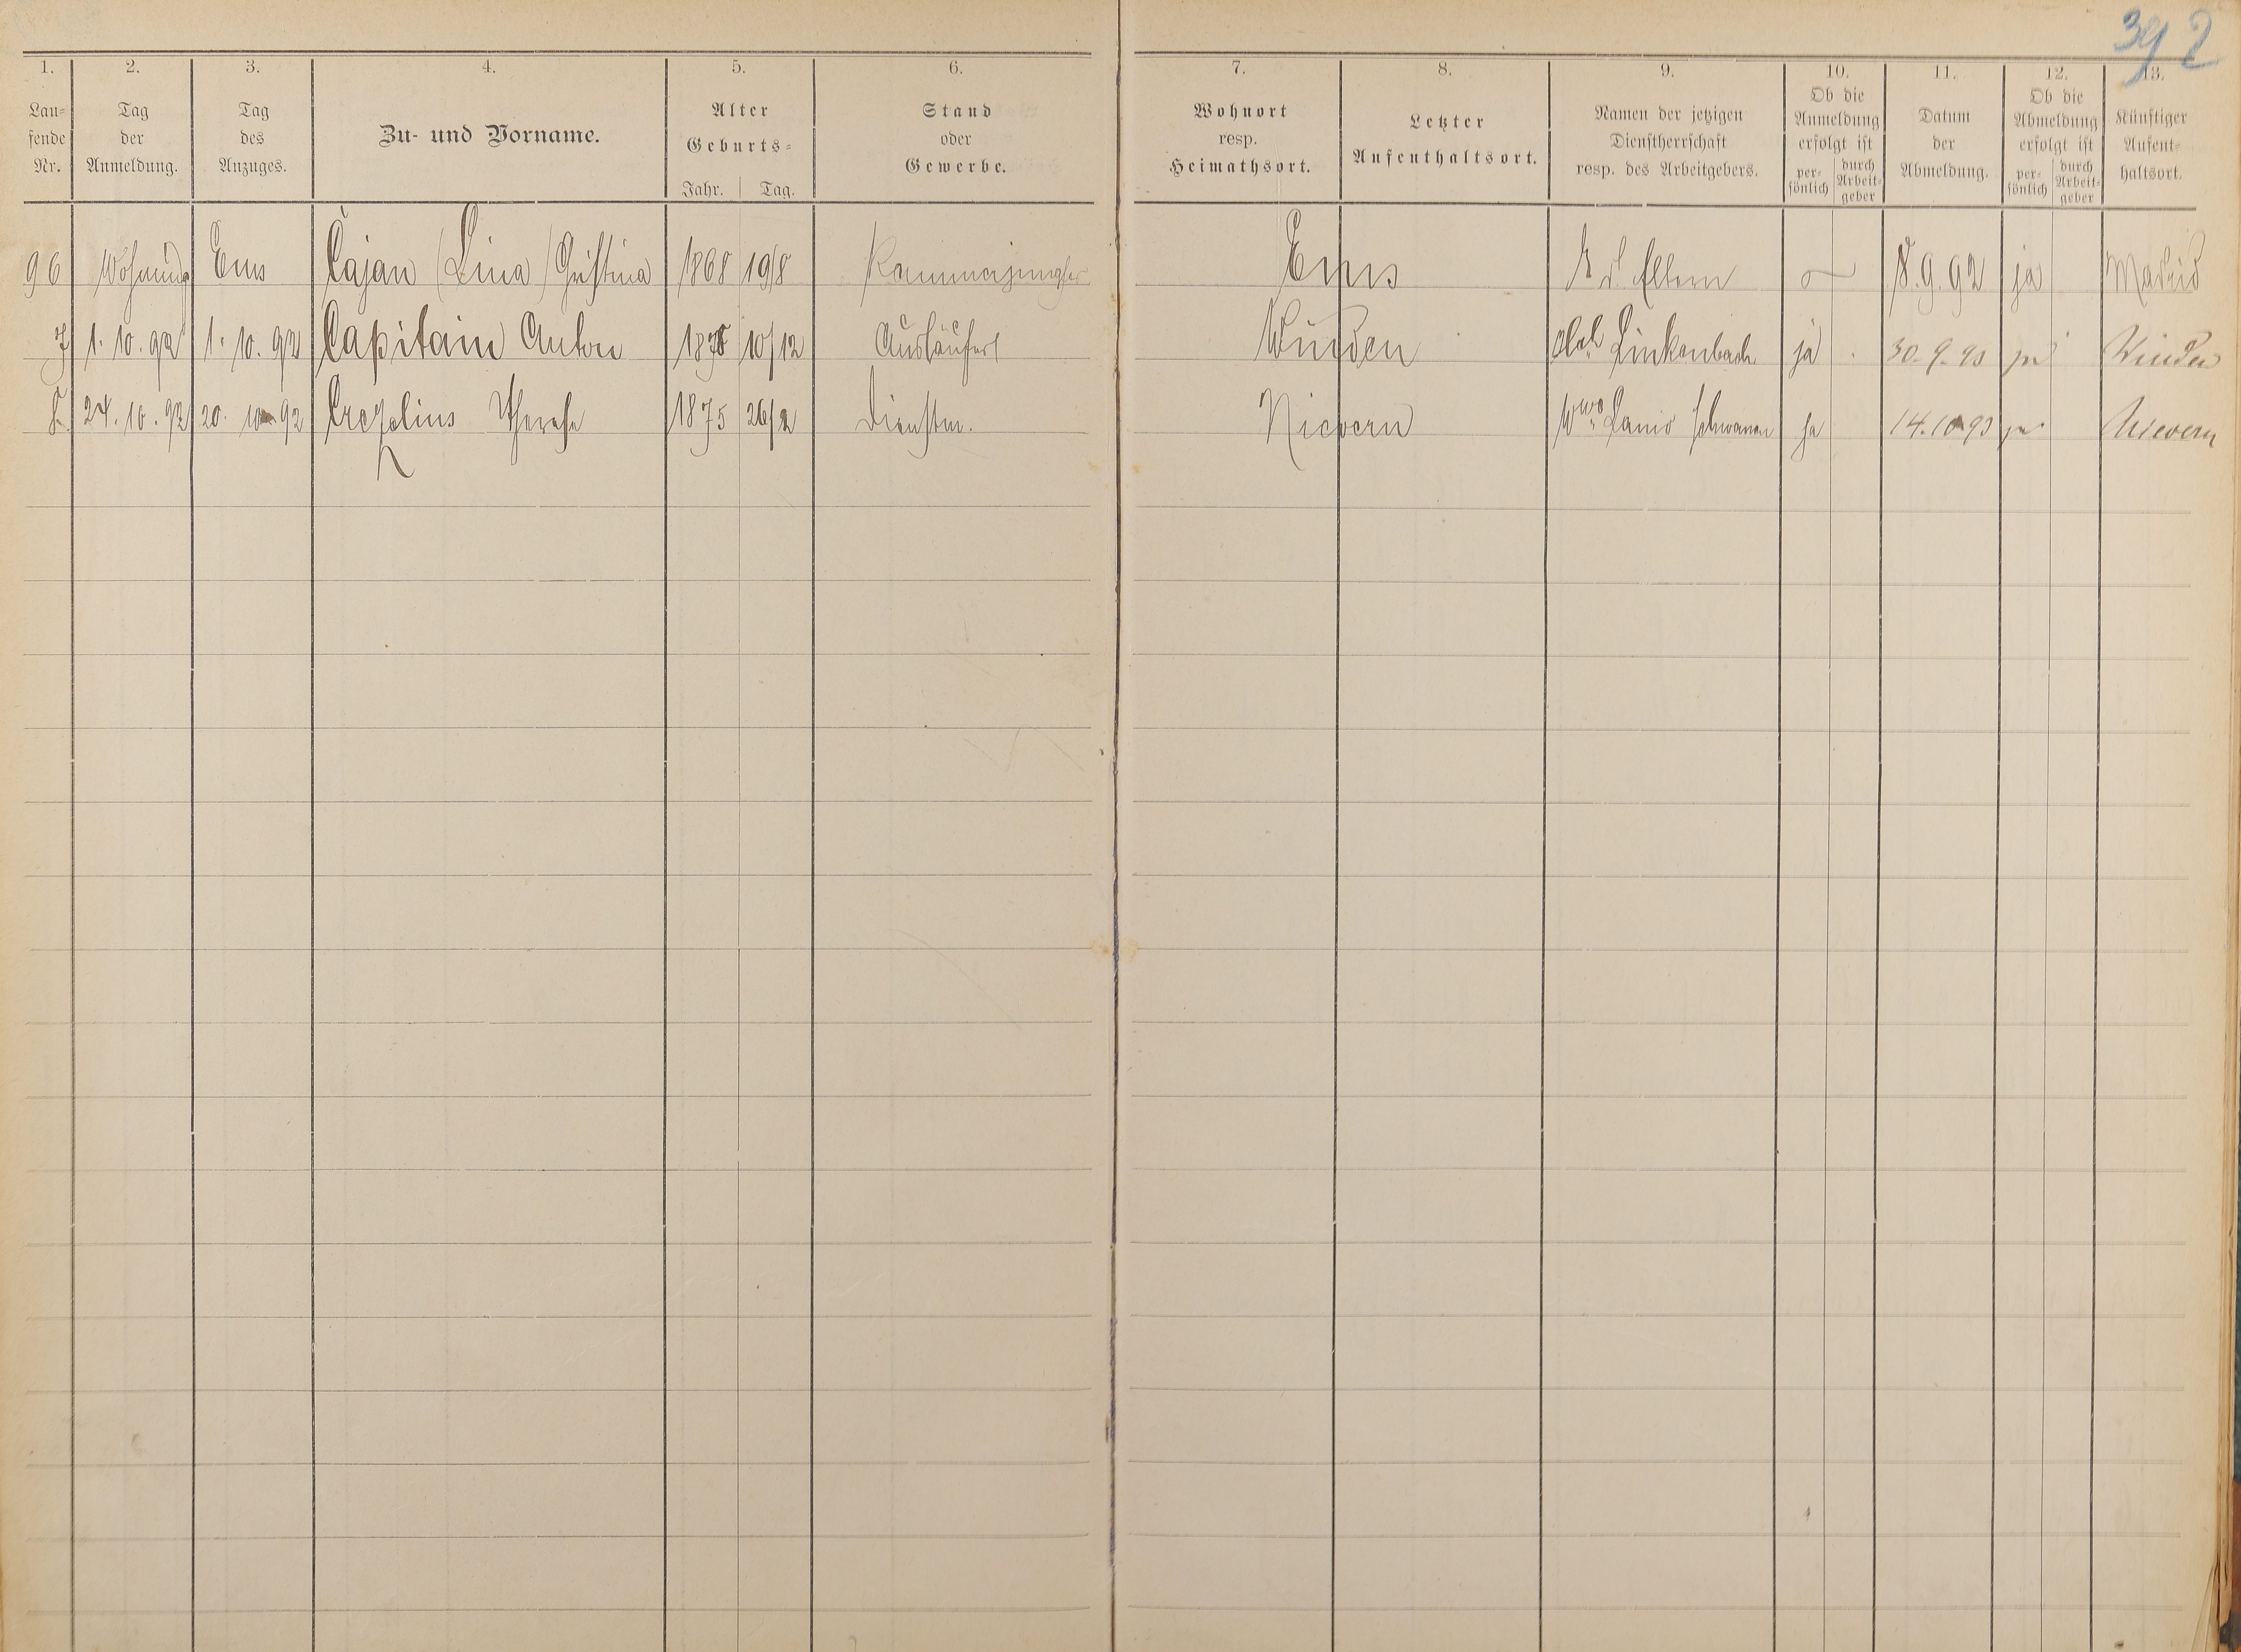 392
1. 2. 3. 4. 5. 6. 7. 8. 9. 10. 11. 12. 13.
Lau-
fende
Nr.
Tag
der
Anmeldung.
Tag
des
Anzuges.
Zu- und Vorname.
Alter
Geburts-
Jahr. Tag.
Stand
oder
Gewerbe.
Wohnort
resp.
Heimathsort.
Letzter
Aufenthaltsort.
Namen der jetzigen
Dienstherrschaft
resp. des Arbeitgebers.
Ob die
Anmeldung
erfolgt ist
per-
sönlich
durch
Arbeit-
geber
Datum
der
Abmeldung.
Ob die
Abmeldung
erfolgt ist
per-
sönlich
durch
Arbeit-
geber
Künftiger
Aufent-
haltsort.
96 Ems Cajan (Lina) Christina 1868 19/8 Kammerjungfer Ems Eltern 8.9.92 ja Madrid
7 1. 10. 92 1. 10. 92 Capitain Anton 10/12 Ausläufer Winden Linkenbach ja 30. 9. 93 ja Winden
8. 24. 10. 92 20. 10 92 Crezelius Therese 1875 26/2 Dienstm. Nievern Wwe Lanio Schwanen ja 14. 10 93 ja Nievern